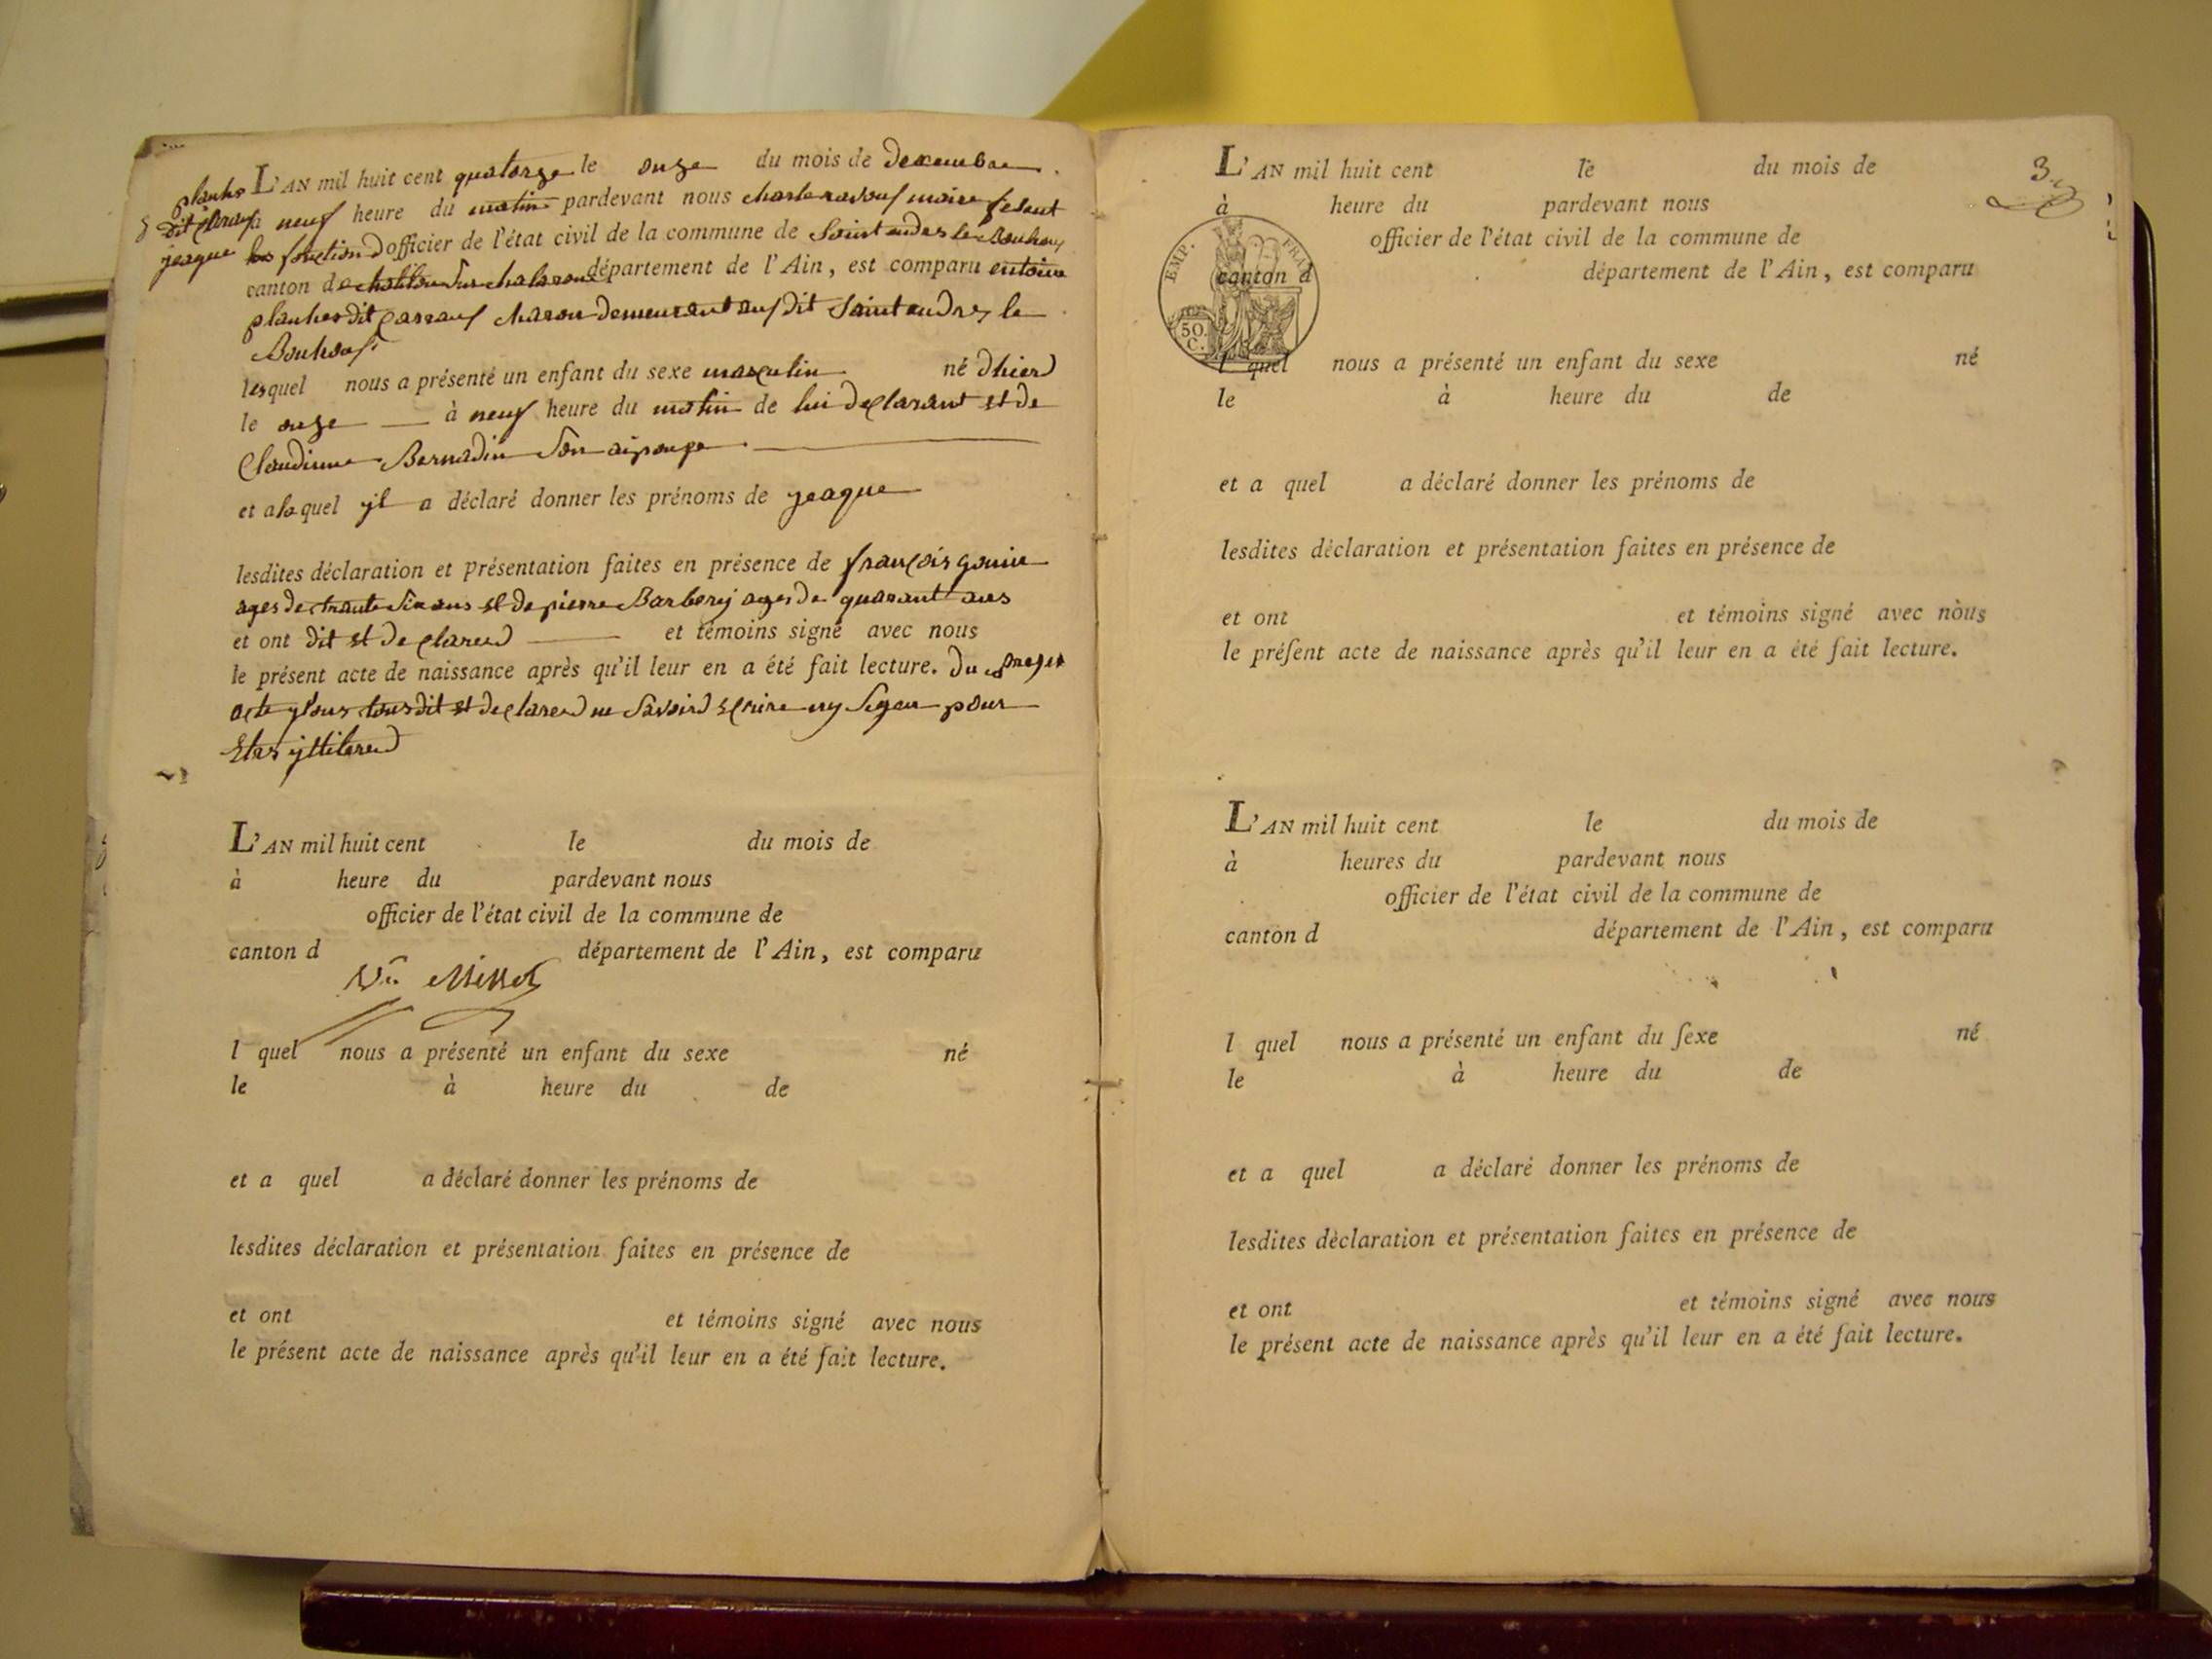 planche
8 dit Carraf
jeaque
L'AN mil huit cent quatorze le onze du mois de decembre
à neuf heure du matin pardevant nous charle ravouf maire fesant
les fonction d officier de l'état civil de la commune de Saint andre le Bouhouf
canton de chatillon sur chalaronde département de l'Ain, est comparu entoine
planche dit Carrauf charon demeurant audit Saint andre le
Bouhouf
lesquel nous a présenté un enfant du sexe masculin né dhierd
le onze à neuf heure du matin de lui declarant et de
Claudinne Bernadin son aipouge
et alaquel yl a déclaré donner les prénoms de jeaque
lesdites déclaration et présentation faites en présence de françois gonin
ages de trante six ans et de pierre Barberij ages de quarant ans
et ont dit et declared et témoins signé avec nous
le présent acte de naissance après qu'il leur en a été fait lecture. du
acte tous dit et declared ne savoird scrire ny signer pour
L'AN mil huit cent le du mois de
à heure du pardevant nous
officier de l'état civil de la commune de
canton d département de l'Ain, est comparu
l quel nous a présenté un enfant du sexe né
le à heure du de
et a quel a déclaré donner les prénoms de
lesdites déclaration et présentation faites en présence de
et ont et témoins signé avec nous
le présent acte de naissance après qu'il leur en a été fait lecture.
3
L'AN mil huit cent le du mois de
à heure du pardevant nous
officier de l'état civil de la commune de
EMP. FRA
canton d département de l'Ain, est comparu
50.
C.
l quel nous a présenté un enfant du sexe né
le à heure du de
et a quel a déclaré donner les prénoms de
lesdites déclaration et présentation faites en présence de
et ont et témoins signé avec nous
le préſent acte de naissance après qu'il leur en a été fait lecture.
L'AN mil huit cent le du mois de
à heures du pardevant nous
officier de l'état civil de la commune de
canton d département de l'Ain, est comparu
l quel nous a présenté un enfant du ſexe né
le à heure du de
et a quel a déclaré donner les prénoms de
lesdites déclaration et présentation faites en présence de
et ont et témoins signé avec nous
le présent acte de naissance après qu'il leur en a été fait lecture.